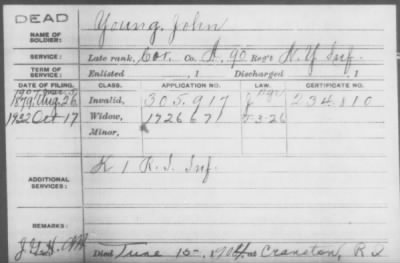 DEAD
NAME OF SOLDIER:
Young, John
SERVICE:
Late rank, Cor. Co. H, 90 Reg't N.Y. Inf.
TERM OF SERVICE:
Enlisted , 1 Discharged , 1
DATE OF FILING. CLASS. APPLICATION NO. LAW. CERTIFICATE NO.
1879 Aug. 26 Invalid, 305.917 234.810
1922 Oct 17 Widow, 1726671
Minor,
ADDITIONAL SERVICES:
K 1 R.I. Inf.
REMARKS:
Died June 15, 1904 at Cranston, R I